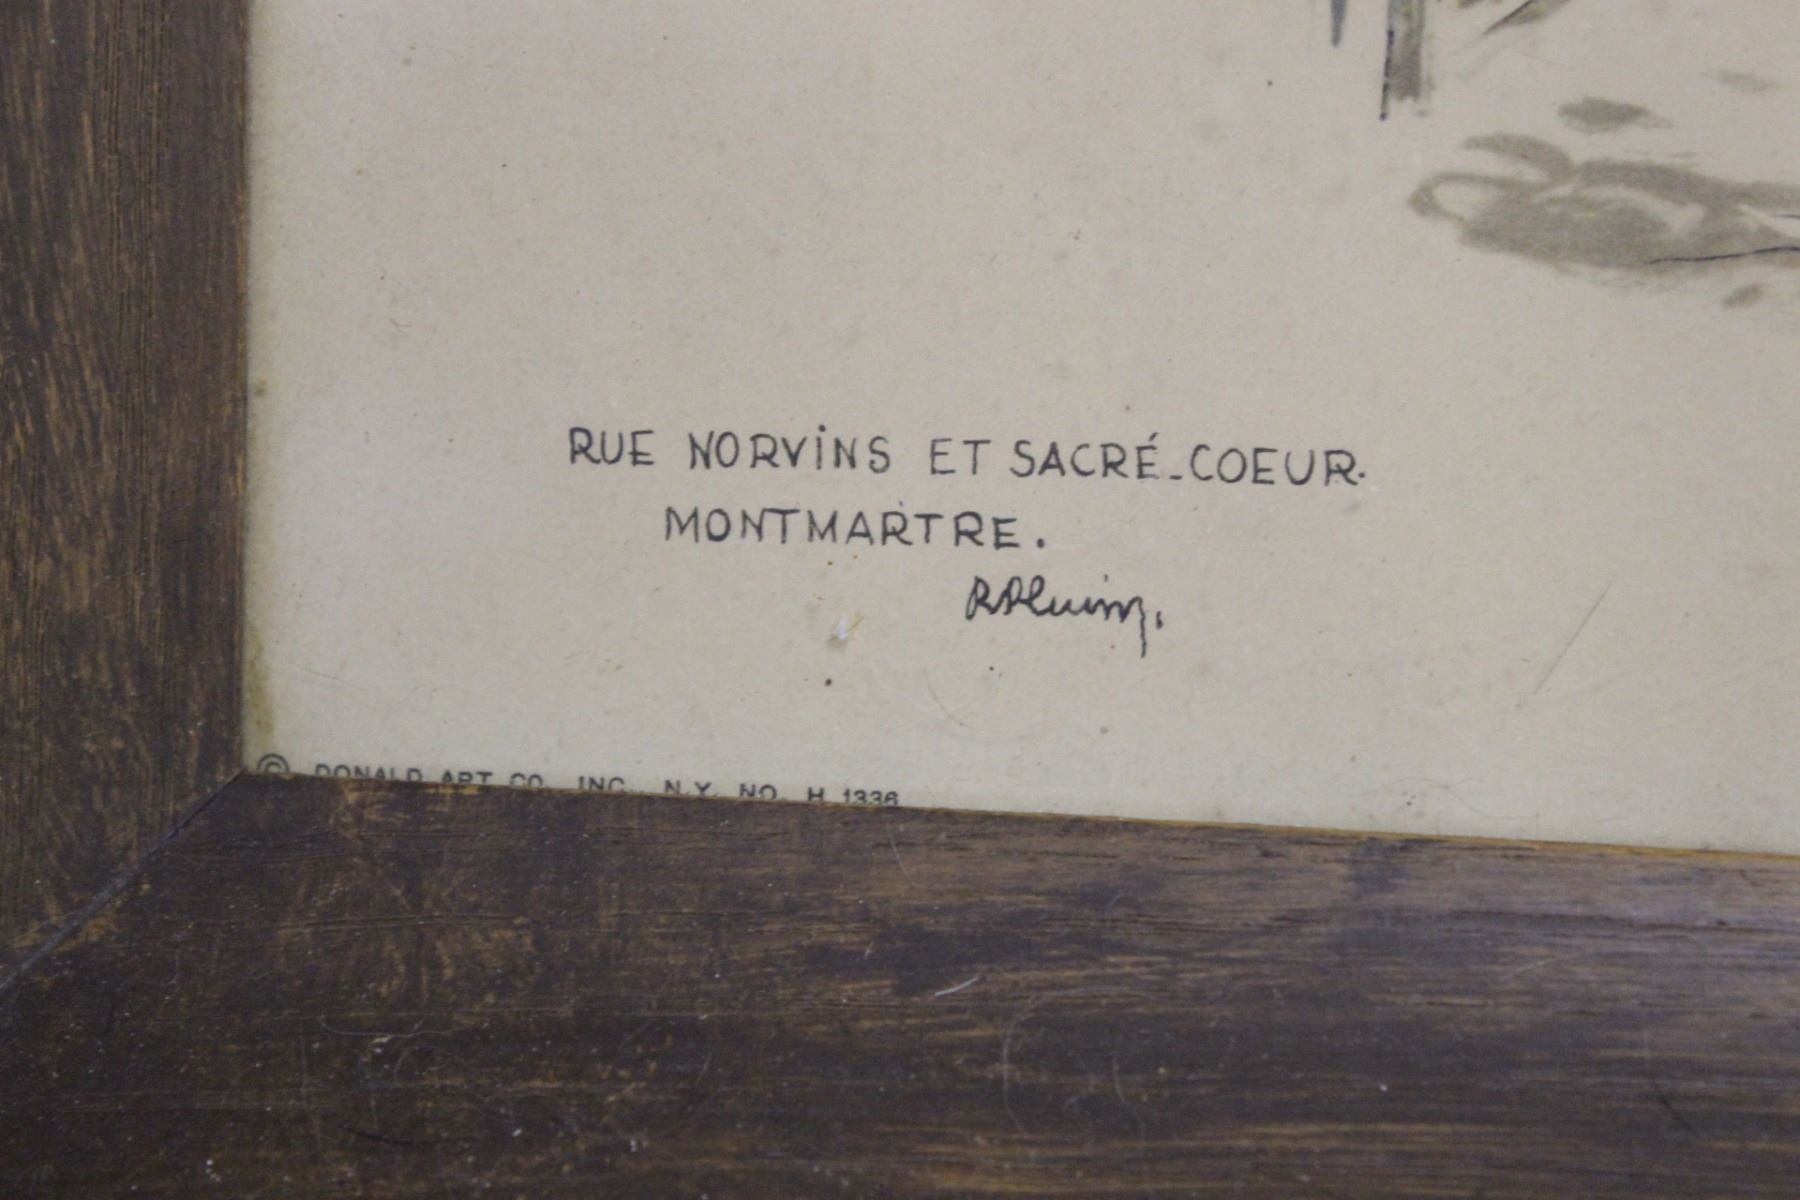 RUE NORVINS ET SACRÉ-COEUR.
MONTMARTRE.
© DONALD ART CO. INC. N.Y. NO. H 1336